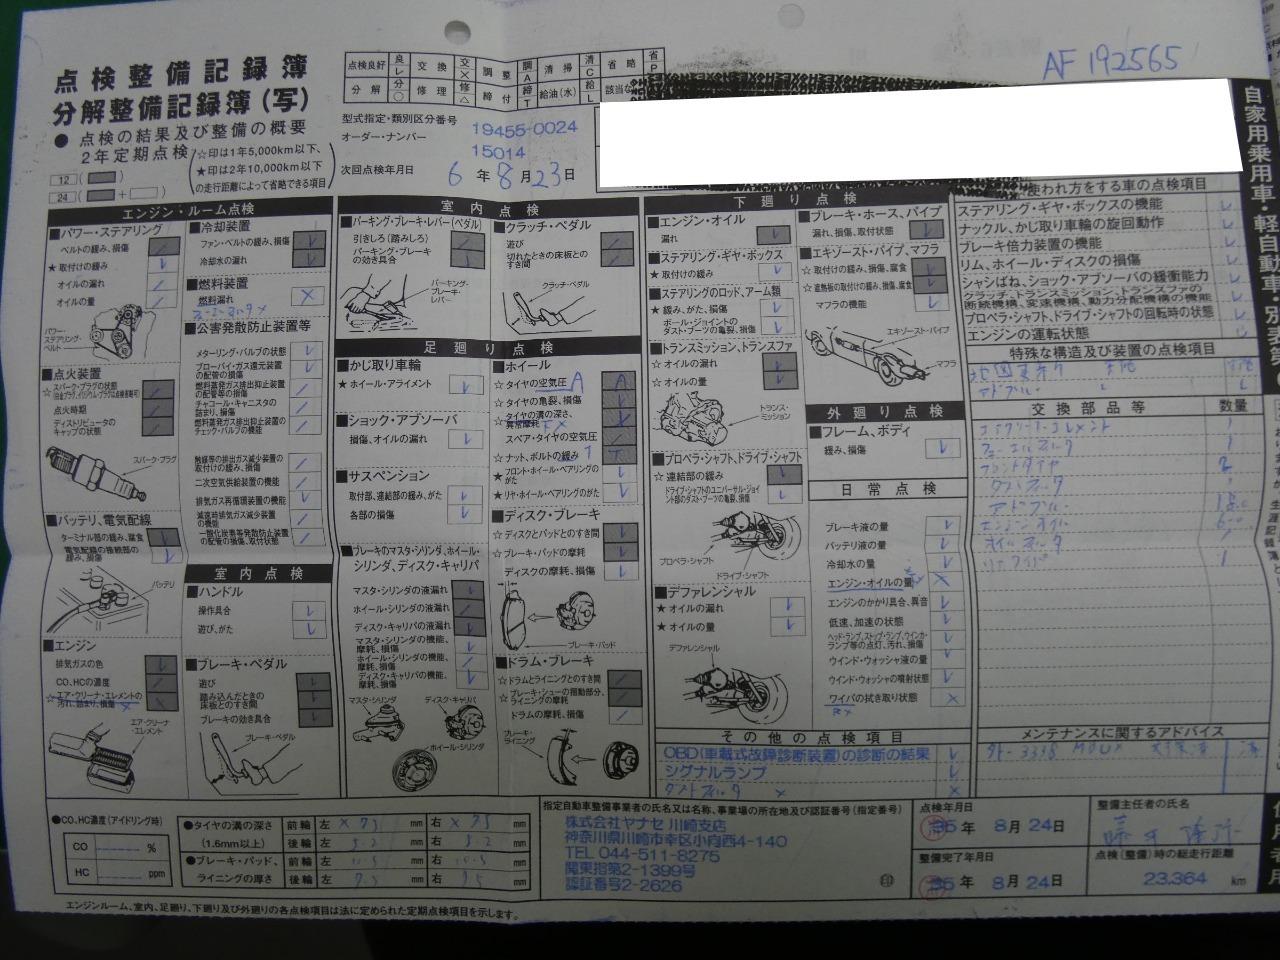 AF 192565
点検整備記録簿
分解整備記録簿(写)
● 点検の結果及び整備の概要
2年定期点検
☆印は1年5,000km以下、
★印は2年10,000km以下
の走行距離によって省略できる項目
12
24
点検良好 良 レ 交換 交 × 調整 調 A 清掃 清 C 省略 省 P
分解 分 ○ 修理 修 △ 締付 締 T 給油(水) 給 L 該当な
型式指定・類別区分番号 19455-0024
オーダー・ナンバー 15014
次回点検年月日 6年8月23日
自家用乗用車・軽自動車・別表第
エンジン・ルーム点検
■パワー・ステアリング
ベルトの緩み、損傷
★取付けの緩み
オイルの漏れ
オイルの量
パワー・ステアリング・ベルト
■点火装置
☆スパーク・プラグの状態
点火時期
ディストリビュータのキャップの状態
スパーク・プラグ
■バッテリ、電気配線
ターミナル部の緩み、腐食
電気配線の接続部の緩み、損傷
バッテリ
■エンジン
排気ガスの色
CO、HCの濃度
☆エア・クリーナ・エレメントの汚れ、詰まり、損傷
エア・クリーナ・エレメント
■冷却装置
ファン・ベルトの緩み、損傷
冷却水の漏れ
■燃料装置
燃料漏れ
■公害発散防止装置等
メターリング・バルブの状態
ブローバイ・ガス還元装置の配管の損傷
燃料蒸発ガス排出抑止装置の配管等の損傷
チャコール・キャニスタの詰まり、損傷
燃料蒸発ガス排出抑止装置のチェック・バルブの機能
触媒等の排出ガス減少装置の取付けの緩み、損傷
二次空気供給装置の機能
排気ガス再循環装置の機能
減速時排気ガス減少装置の機能
一酸化炭素等発散防止装置の配管の損傷、取付状態
室内点検
■ハンドル
操作具合
遊び、がた
■ブレーキ・ペダル
遊び
踏み込んだときの床板とのすき間
ブレーキの効き具合
ブレーキ・ペダル
室内点検
■パーキング・ブレーキ・レバー(ペダル)
引きしろ(踏みしろ)
パーキング・ブレーキの効き具合
パーキング・ブレーキ・レバー
■クラッチ・ペダル
遊び
切れたときの床板とのすき間
クラッチ・ペダル
足廻り点検
■かじ取り車輪
★ホイール・アライメント
■ショック・アブソーバ
損傷、オイルの漏れ
■サスペンション
取付部、連結部の緩み、がた
各部の損傷
■ブレーキのマスタ・シリンダ、ホイール・シリンダ、ディスク・キャリパ
マスタ・シリンダの液漏れ
ホイール・シリンダの液漏れ
ディスク・キャリパの液漏れ
マスタ・シリンダの機能、摩耗、損傷
ホイール・シリンダの機能、摩耗、損傷
ディスク・キャリパの機能、摩耗、損傷
マスタ・シリンダ
ディスク・キャリパ
ホイール・シリンダ
■ホイール
☆タイヤの空気圧 A
☆タイヤの亀裂、損傷
☆タイヤの溝の深さ、異常摩耗
スペア・タイヤの空気圧
☆ナット、ボルトの緩み T
★フロント・ホイール・ベアリングのがた
★リヤ・ホイール・ベアリングのがた
■ディスク・ブレーキ
☆ディスクとパッドとのすき間
☆ブレーキ・パッドの摩耗
ディスクの摩耗、損傷
ブレーキ・パッド
■ドラム・ブレーキ
☆ドラムとライニングとのすき間
☆ブレーキ・シューの摺動部分、ライニングの摩耗
ドラムの摩耗、損傷
ブレーキ・ライニング
下廻り点検
■エンジン・オイル
漏れ
■ステアリング・ギヤ・ボックス
★取付けの緩み
■ステアリングのロッド、アーム類
★緩み、がた、損傷
ボール・ジョイントのダスト・ブーツの亀裂、損傷
■トランスミッション、トランスファ
☆オイルの漏れ
☆オイルの量
トランス・ミッション
■プロペラ・シャフト、ドライブ・シャフト
☆連結部の緩み
ドライブ・シャフトのユニバーサル・ジョイント部のダスト・ブーツの亀裂、損傷
プロペラ・シャフト
ドライブ・シャフト
■デファレンシャル
★オイルの漏れ
★オイルの量
デファレンシャル
■ブレーキ・ホース、パイプ
漏れ、損傷、取付状態
■エキゾースト・パイプ、マフラ
☆取付けの緩み、損傷、腐食
☆遮熱板の取付けの緩み、損傷、腐食
マフラの機能
エキゾースト・パイプ
マフラ
外廻り点検
■フレーム、ボディ
緩み、損傷
日常点検
ブレーキ液の量
バッテリ液の量
冷却水の量
エンジン・オイルの量
エンジンのかかり具合、異音
低速、加速の状態
ヘッド・ランプ、ストップ・ランプ、ウインカ・ランプ等の点灯、汚れ、損傷
ウインド・ウォッシャ液の量
ウインド・ウォッシャの噴射状態
ワイパの拭き取り状態
その他の点検項目
OBD(車載式故障診断装置)の診断の結果
シグナルランプ
使われ方をする車の点検項目
ステアリング・ギヤ・ボックスの機能
ナックル、かじ取り車輪の旋回動作
ブレーキ倍力装置の機能
リム、ホイール・ディスクの損傷
シャシばね、ショック・アブソーバの緩衝能力
クラッチ、トランスミッション、トランスファの断続機構、変速機構、動力分配機構の機能
プロペラ・シャフト、ドライブ・シャフトの回転時の状態
エンジンの運転状態
特殊な構造及び装置の点検項目
交換部品等 数量
フロントタイヤ 2
アドブルー
エンジンオイル
オイルフィルタ 1
メンテナンスに関するアドバイス
●CO、HC濃度(アイドリング時)
CO %
HC ppm
●タイヤの溝の深さ 前輪 左 mm 右 mm
(1.6mm以上) 後輪 左 5.2 mm 右 5.2 mm
●ブレーキ・パッド、 前輪 左 mm 右 mm
ライニングの厚さ 後輪 左 mm 右 mm
指定自動車整備事業者の氏名又は名称、事業場の所在地及び認証番号(指定番号)
株式会社ヤナセ 川崎支店
神奈川県川崎市幸区小向西4-140
TEL 044-511-8275
関東指第2-1399号
認証番号2-2626
印
点検年月日
5年 8月 24日
整備完了年月日
5年 8月 24日
整備主任者の氏名
点検(整備)時の総走行距離
23,364 km
エンジンルーム、室内、足廻り、下廻り及び外廻りの各点検項目は法に定められた定期点検項目を示します。